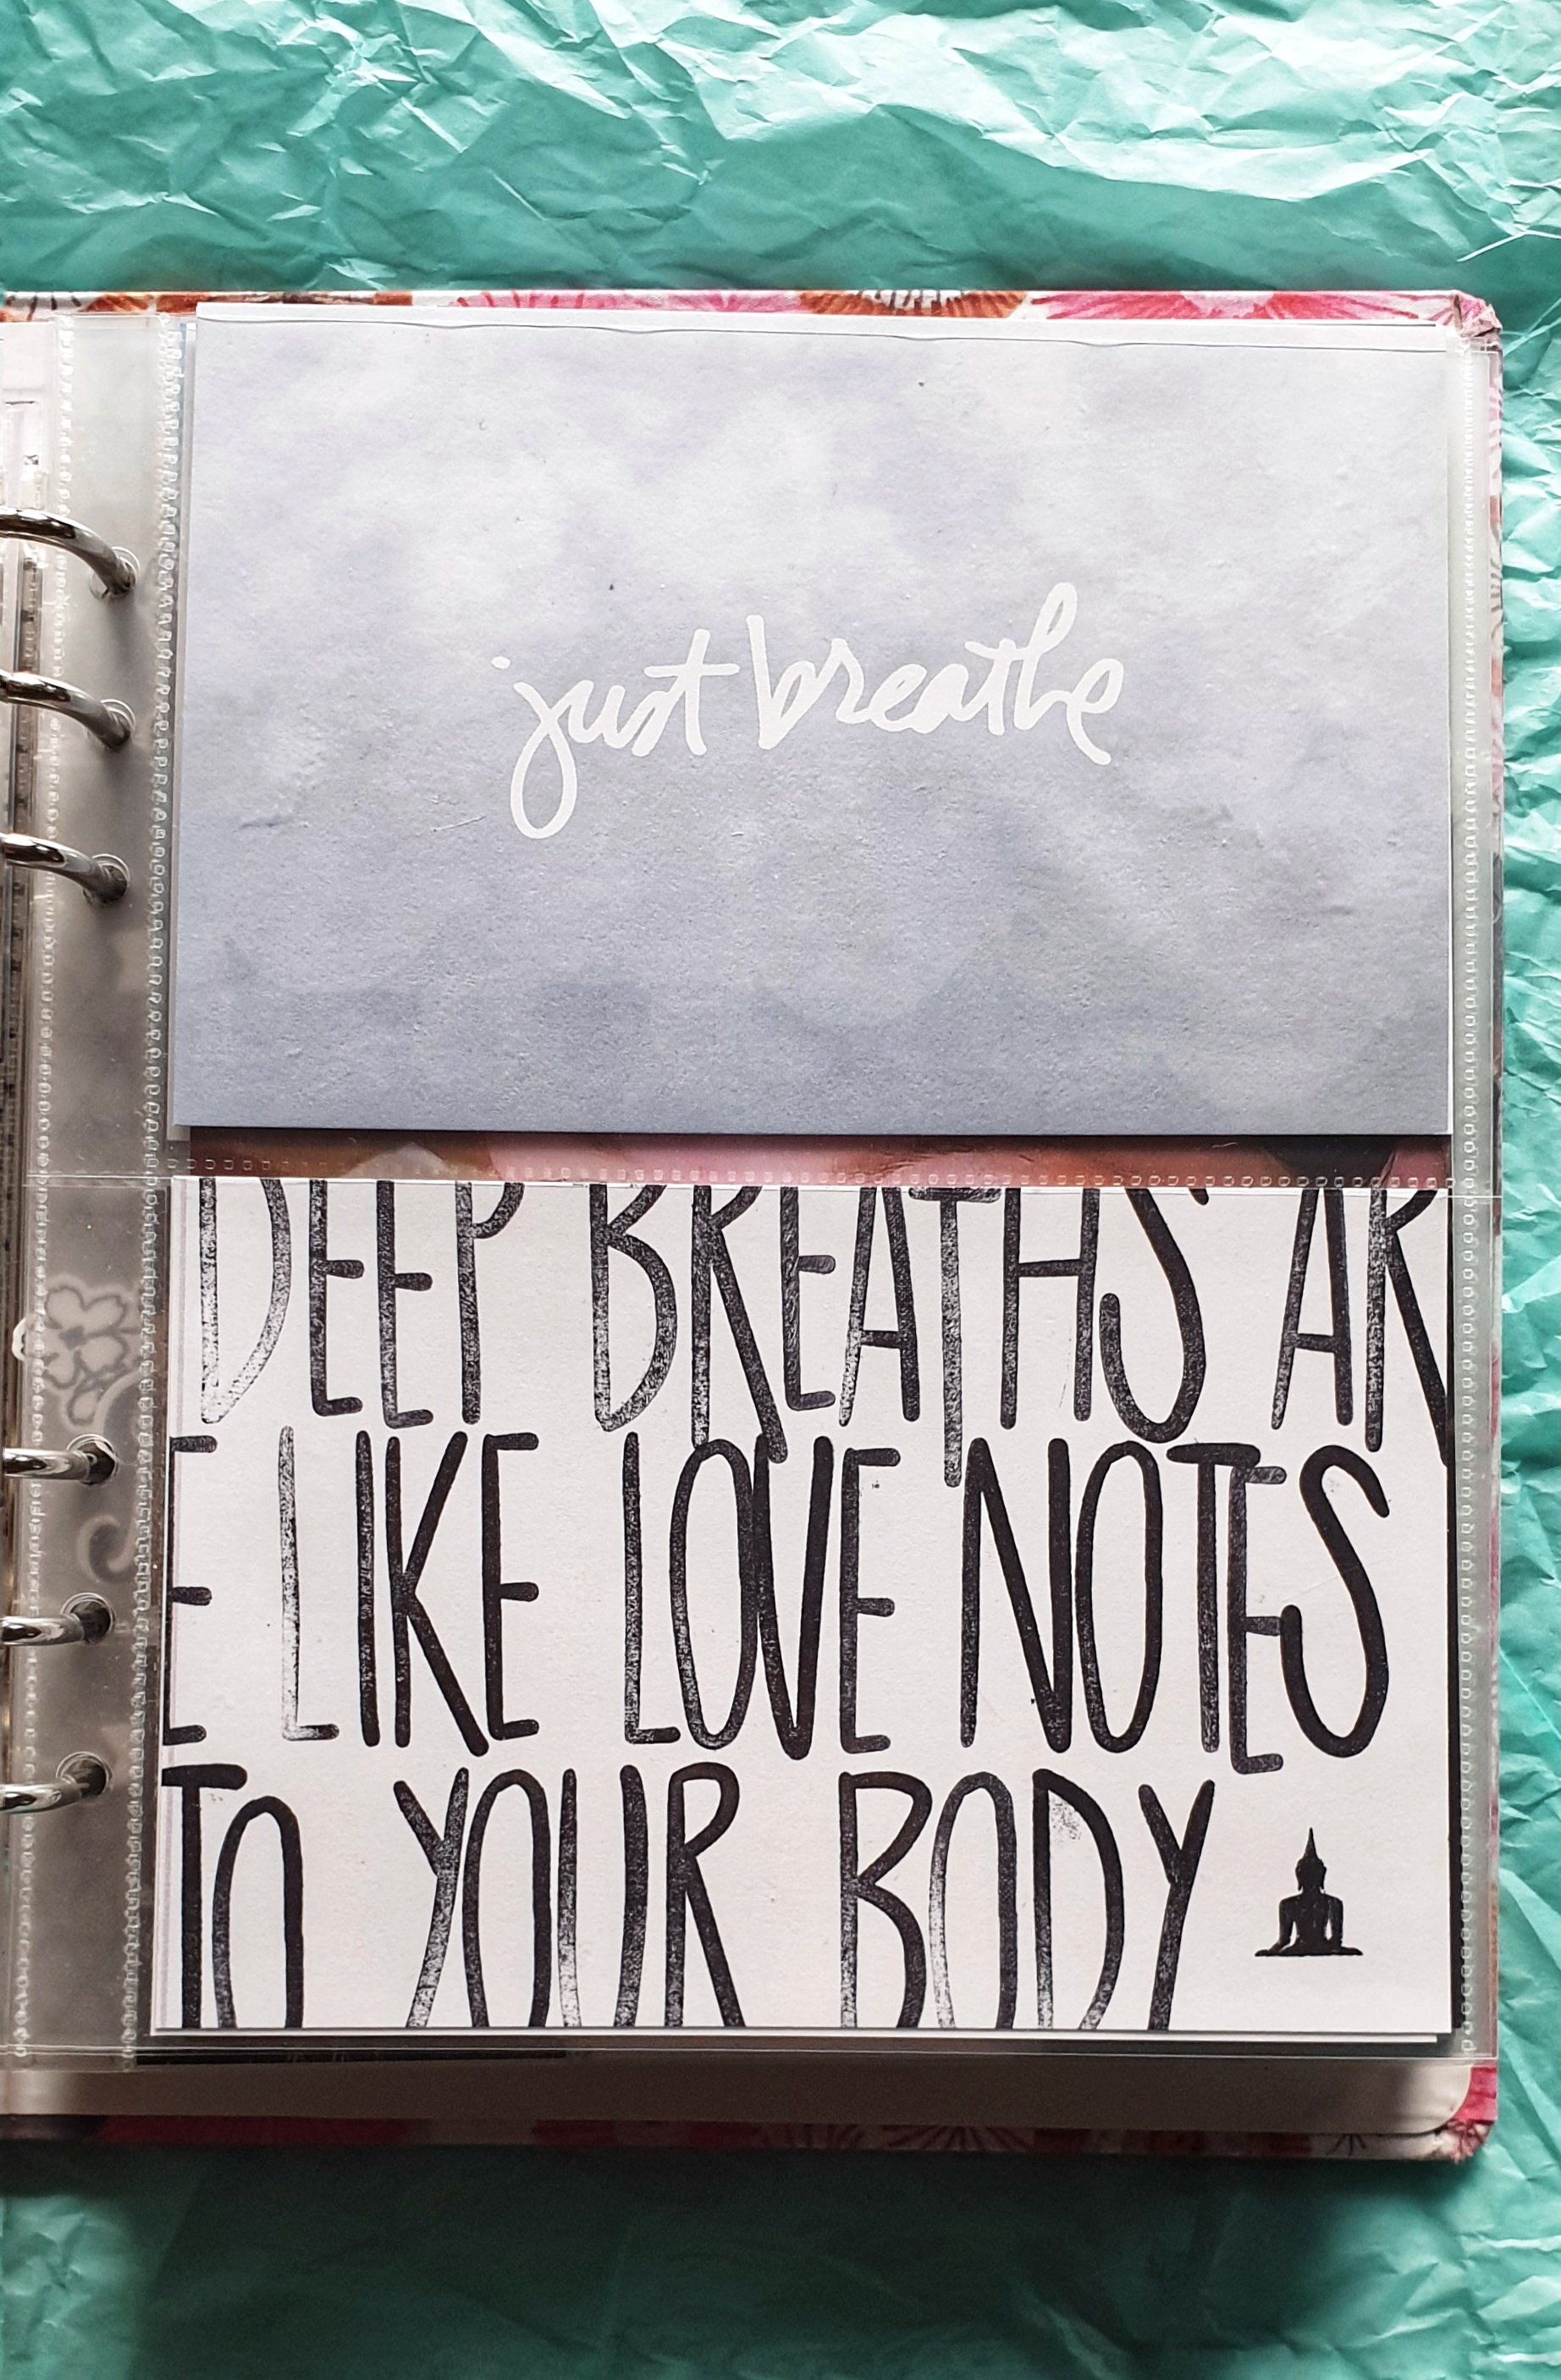 just breathe
DEEP BREATHS AR
E LIKE LOVE NOTES
TO YOUR BODY